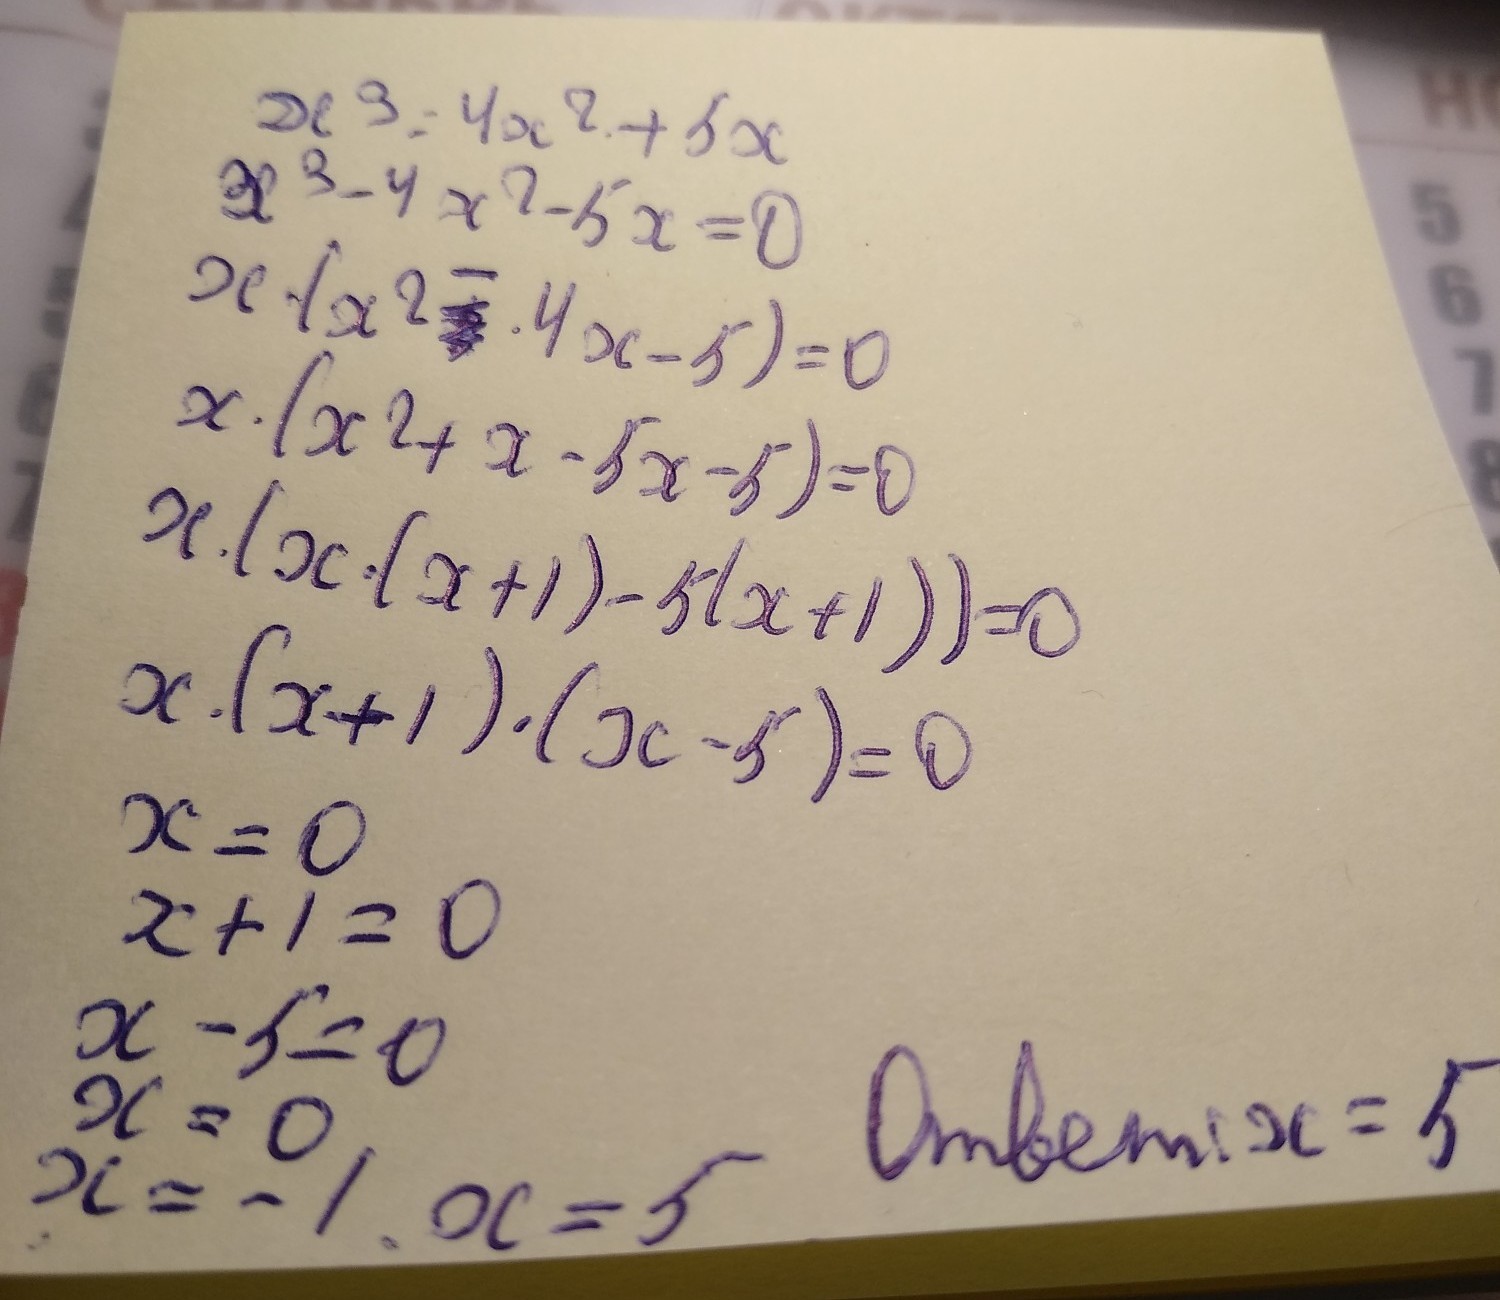 СЕНТЯБРЬ
x³ = 4x² + 5x
x³ - 4x² - 5x = 0
x·(x² - 4x - 5) = 0
x·(x² + x - 5x - 5) = 0
x·(x·(x+1) - 5(x+1)) = 0
x·(x+1)·(x-5) = 0
x = 0
x + 1 = 0
x - 5 = 0
x = 0
x = -1. x = 5
Ответ: x = 5
5
6
7
8